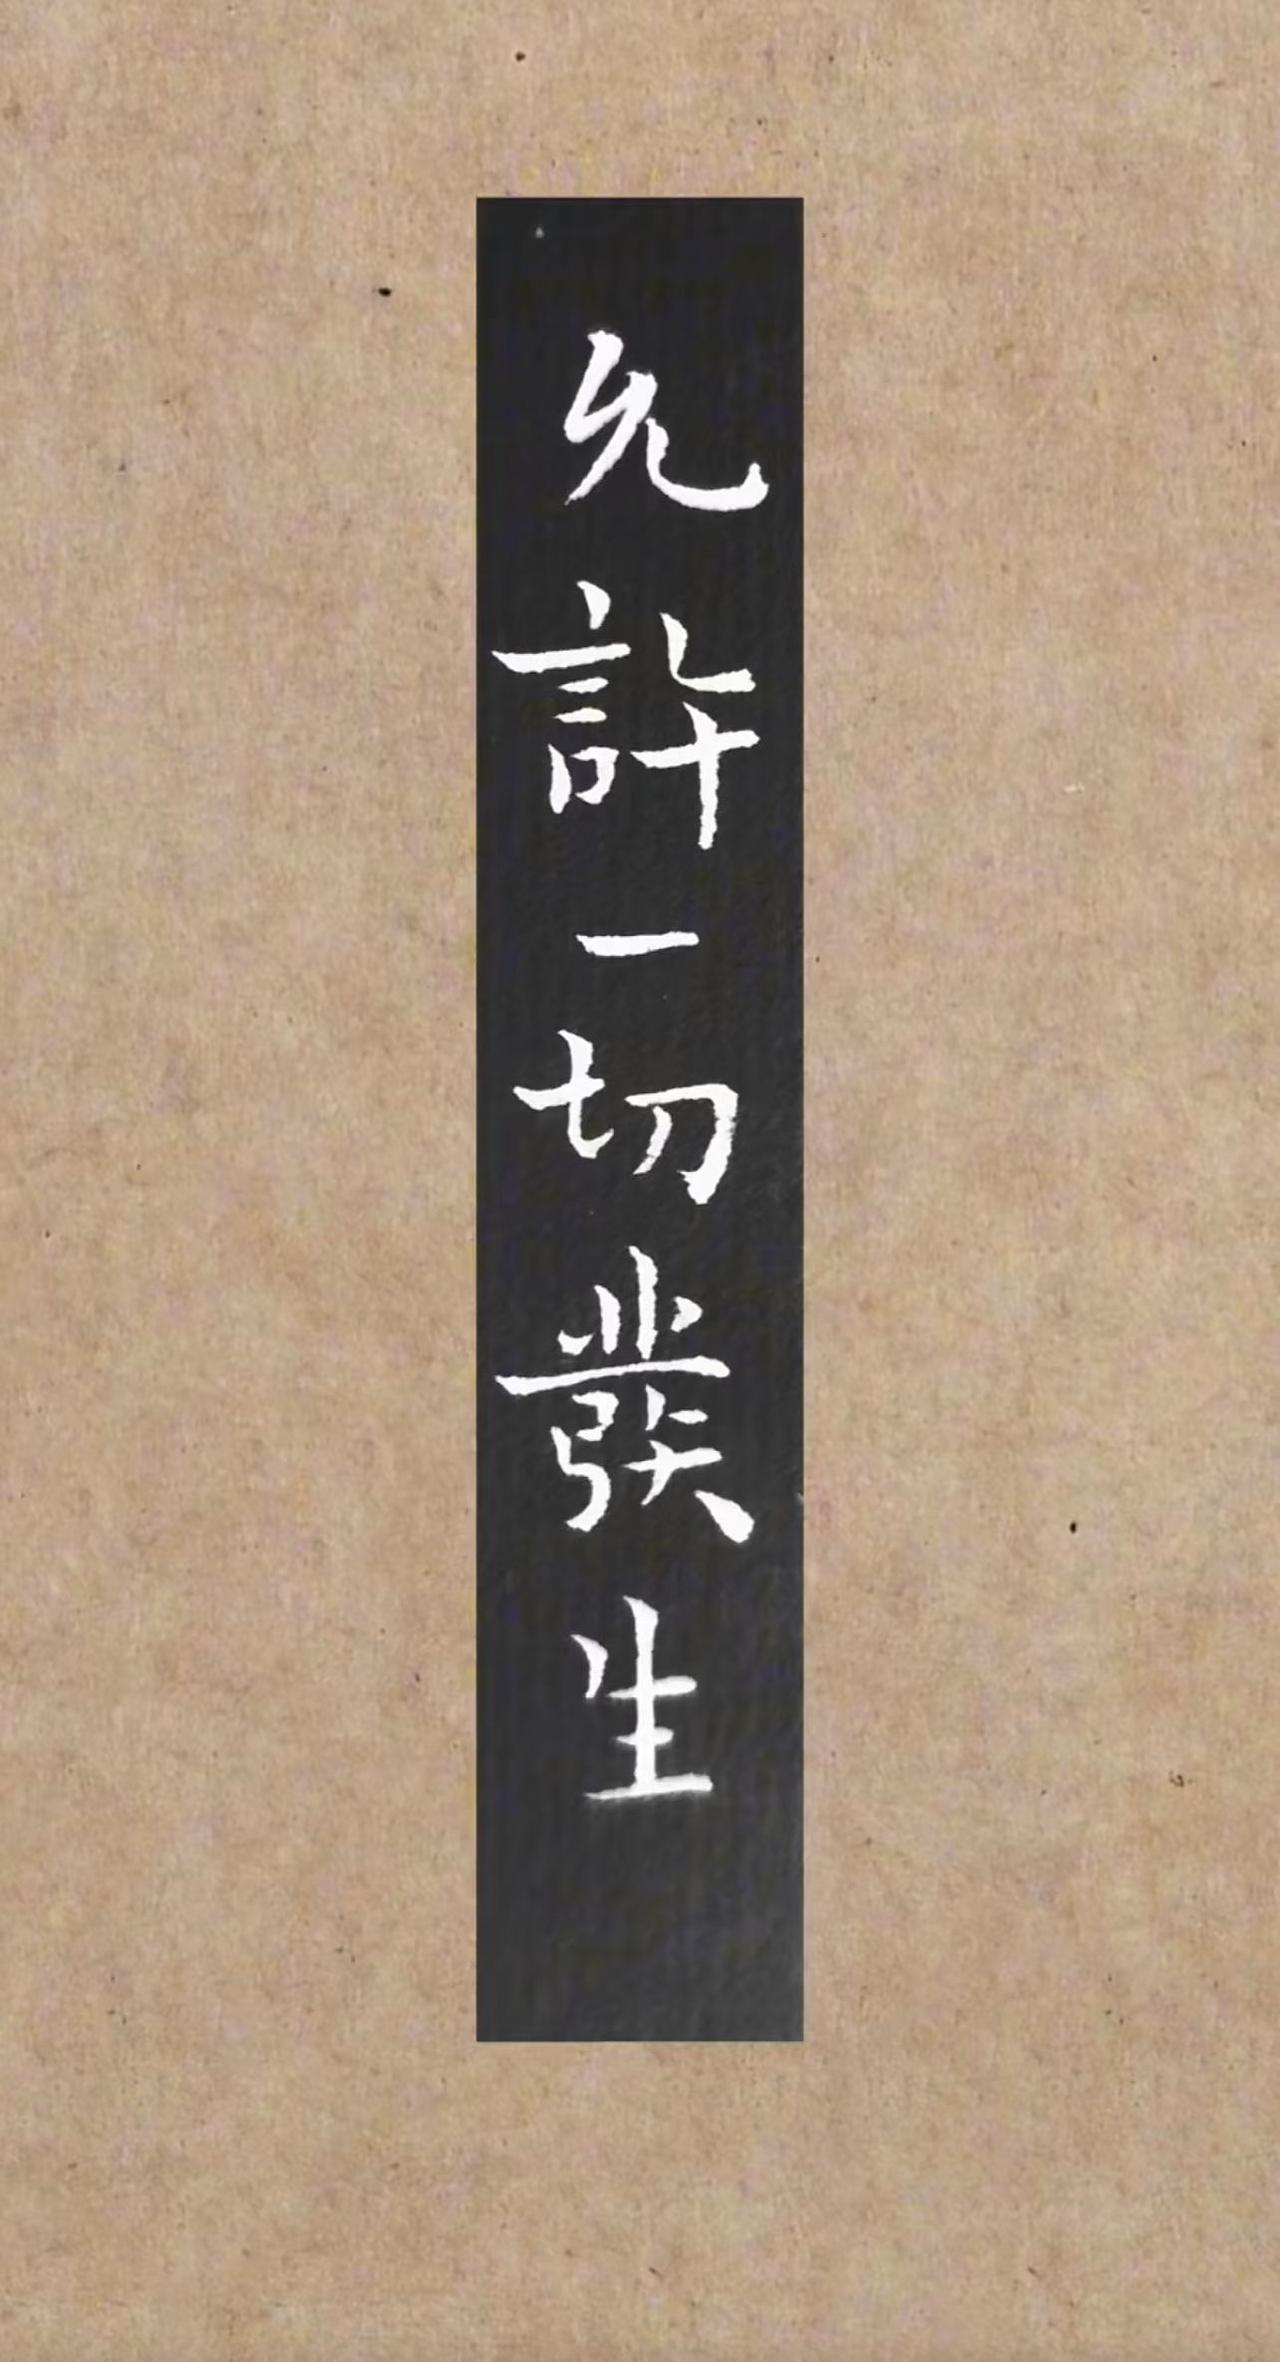 允許一切發生